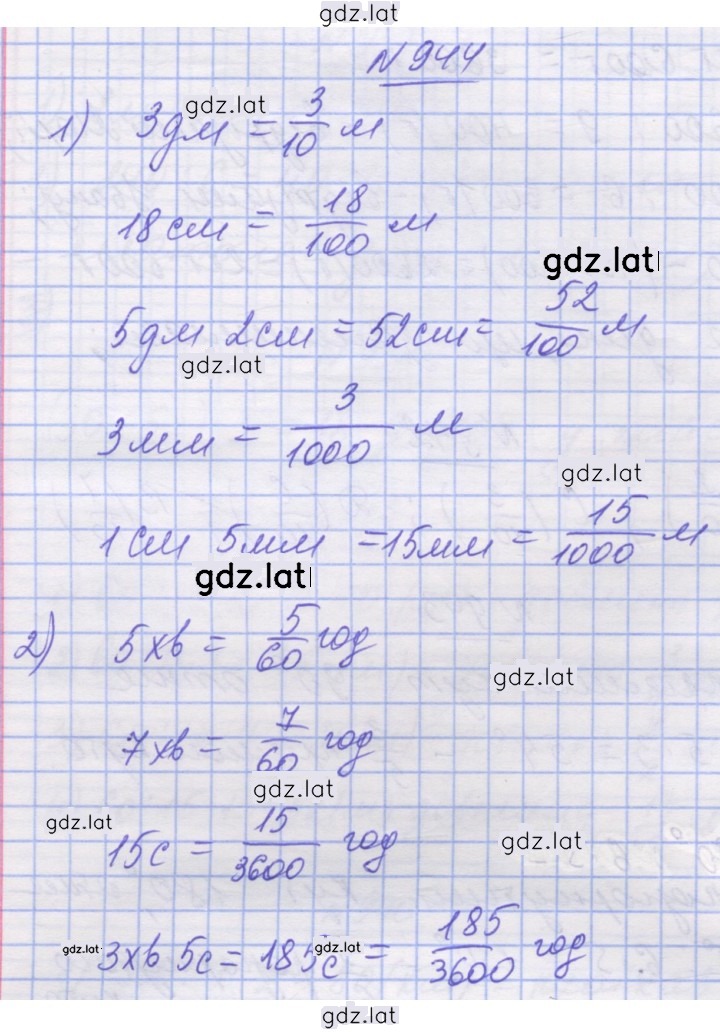 gdz.lat
N 944
gdz.lat
1) 3дм = 3/10 м
18см = 18/100 м
gdz.lat
5дм 2см = 52см = 52/100 м
gdz.lat
3мм = 3/1000 м
gdz.lat
1см 5мм = 15мм = 15/1000 м
gdz.lat
2) 5хв = 5/60 год
gdz.lat
7хв = 7/60 год
gdz.lat
gdz.lat
15с = 15/3600 год
gdz.lat
3хв 5с = 185с = 185/3600 год
gdz.lat
gdz.lat
gdz.lat